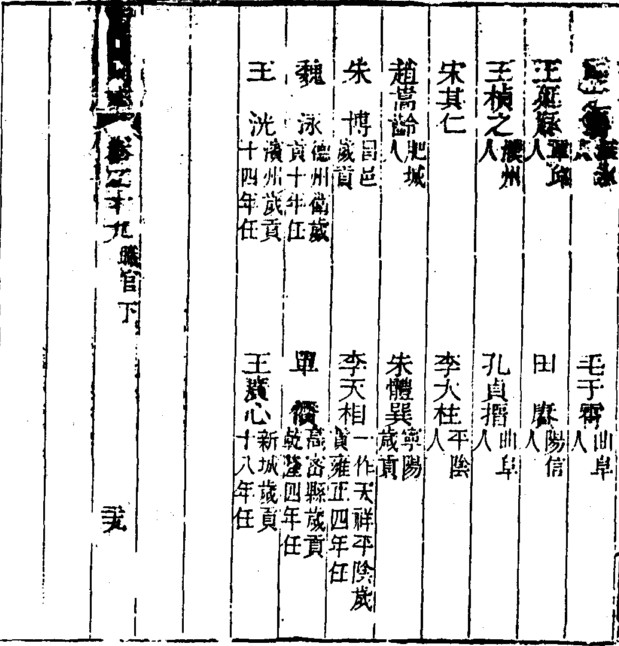 毛于 曲阜人
王延 章邱人 田 陽信人
王楨之 膠州人 孔貞搢 曲阜人
宋其仁 李大柱 平陰人
趙嵩齡 肥城人 朱體巽 寧陽歲貢
朱博 昌邑歲貢 李天相 一作天祥平陰歲貢雍正四年任
魏泳 德州歲貢十年任 單 高密縣歲貢乾隆四年任
王洸 州歲貢十四年任 王廣心 新城歲貢十八年任
卷二十九 職官下